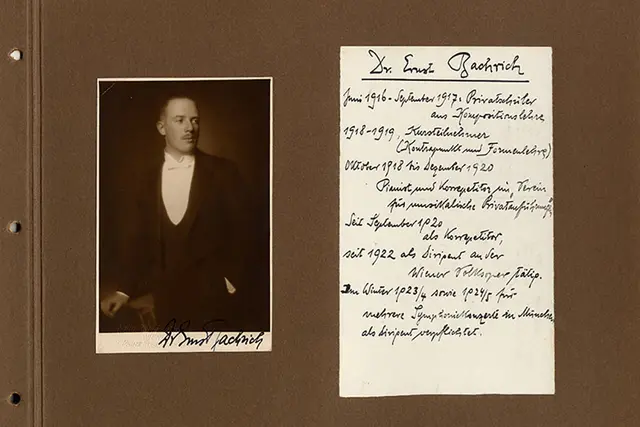 Dr. Ernst Bachrich
Juni 1916 - September 1917: Privatschüler
aus Kompositionslehre
1918-1919, Kursteilnehmer
(Kontrapunkt und Formenlehre)
Oktober 1918 bis Dezember 1920
Pianist und Korrepetitor im "Verein
für musikalische Privataufführungen"
Seit September 1920
als Korrepetitor,
seit 1922 als Dirigent an der
Wiener Volksoper tätig.
Im Winter 1923/4 sowie 1924/5 für
mehrere Symphoniekonzerte in München
als Dirigent verpflichtet.
Dr Ernst Bachrich